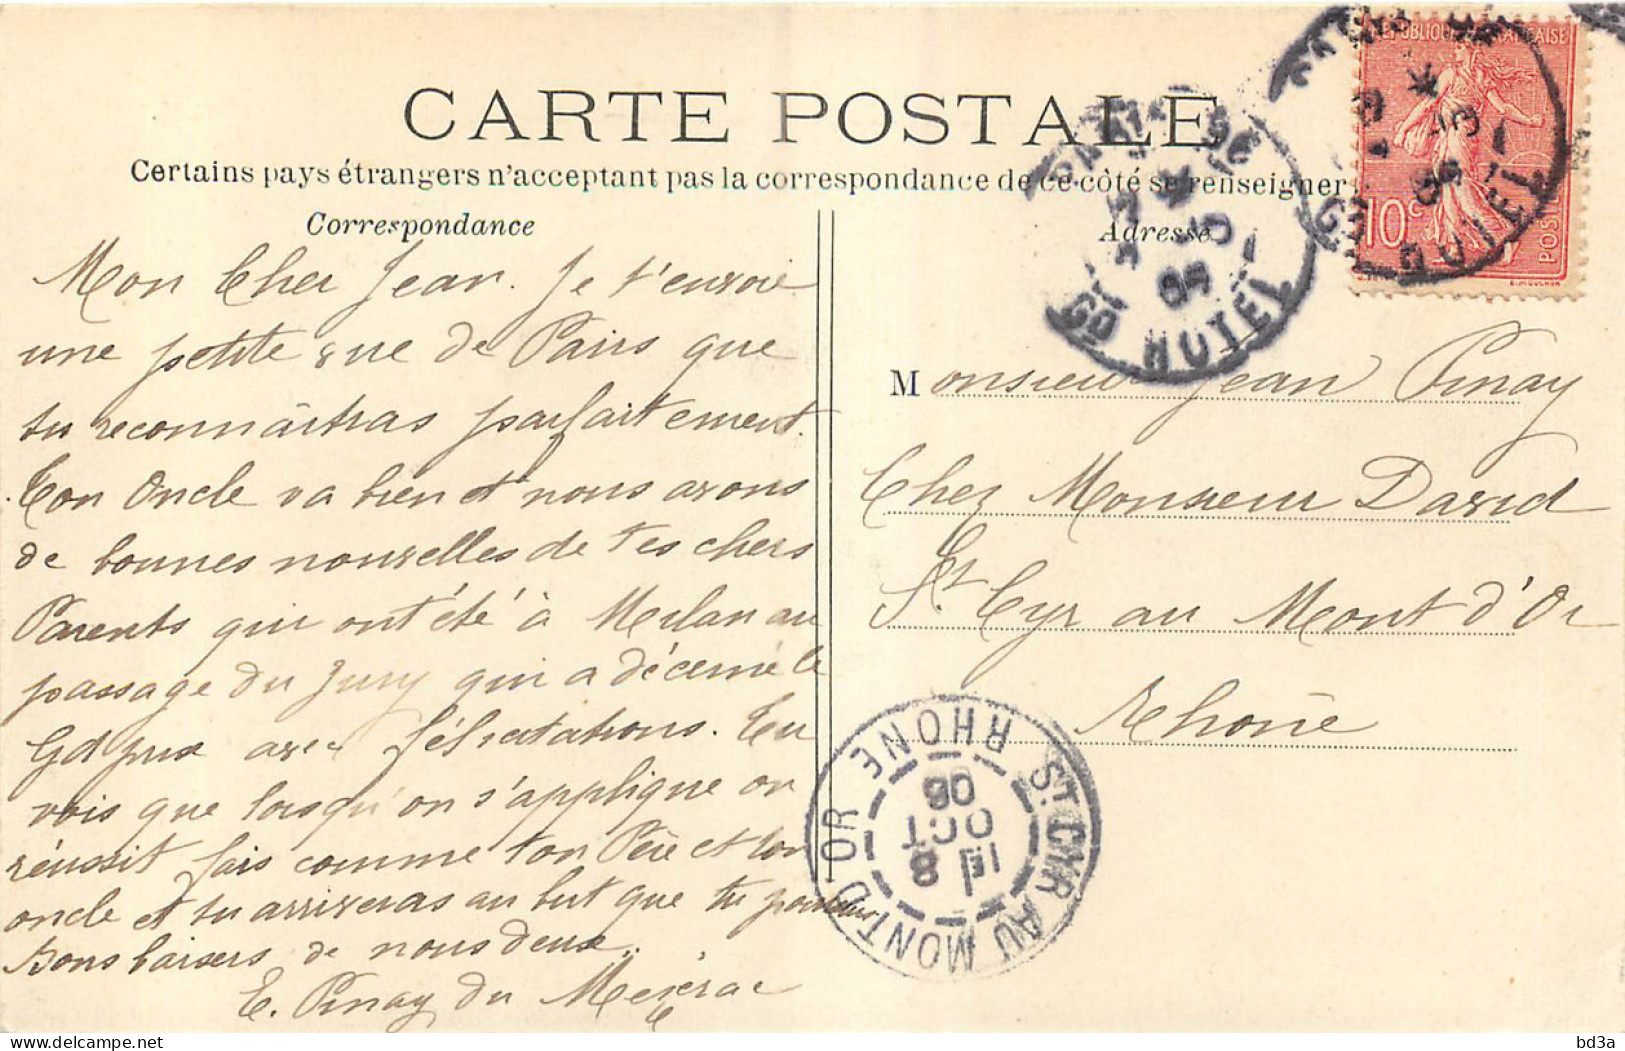 CARTE POSTALE
Certains pays étrangers n'acceptant pas la correspondance de ce côté se renseigner
Correspondance
Mon Cher Jean. Je t'envoie
une petite vue de Paris que
tu reconnaîtras parfaitement.
Ton Oncle va bien et nous avons
de bonnes nouvelles de tes chers
Parents qui ont été à Milan au
passage du Jury qui a décerné le
Gd prix avec félicitations. Tu
vois que lorsqu'on s'applique on
réussit fais comme ton Père et ton
oncle et tu arriveras au but que tu poursuis
Bons baisers de nous deux.
E. Pinay du
Adresse
Monsieur Jean Pinay
Chez Monsieur David
St. Cyr au Mont d'Or
Rhône
REPUBLIQUE FRANÇAISE
10c
POSTES
E. MOUCHON
HOTEL
HOTEL
ST. CYR AU MONT D'OR RHONE
8
OCT
bd3a